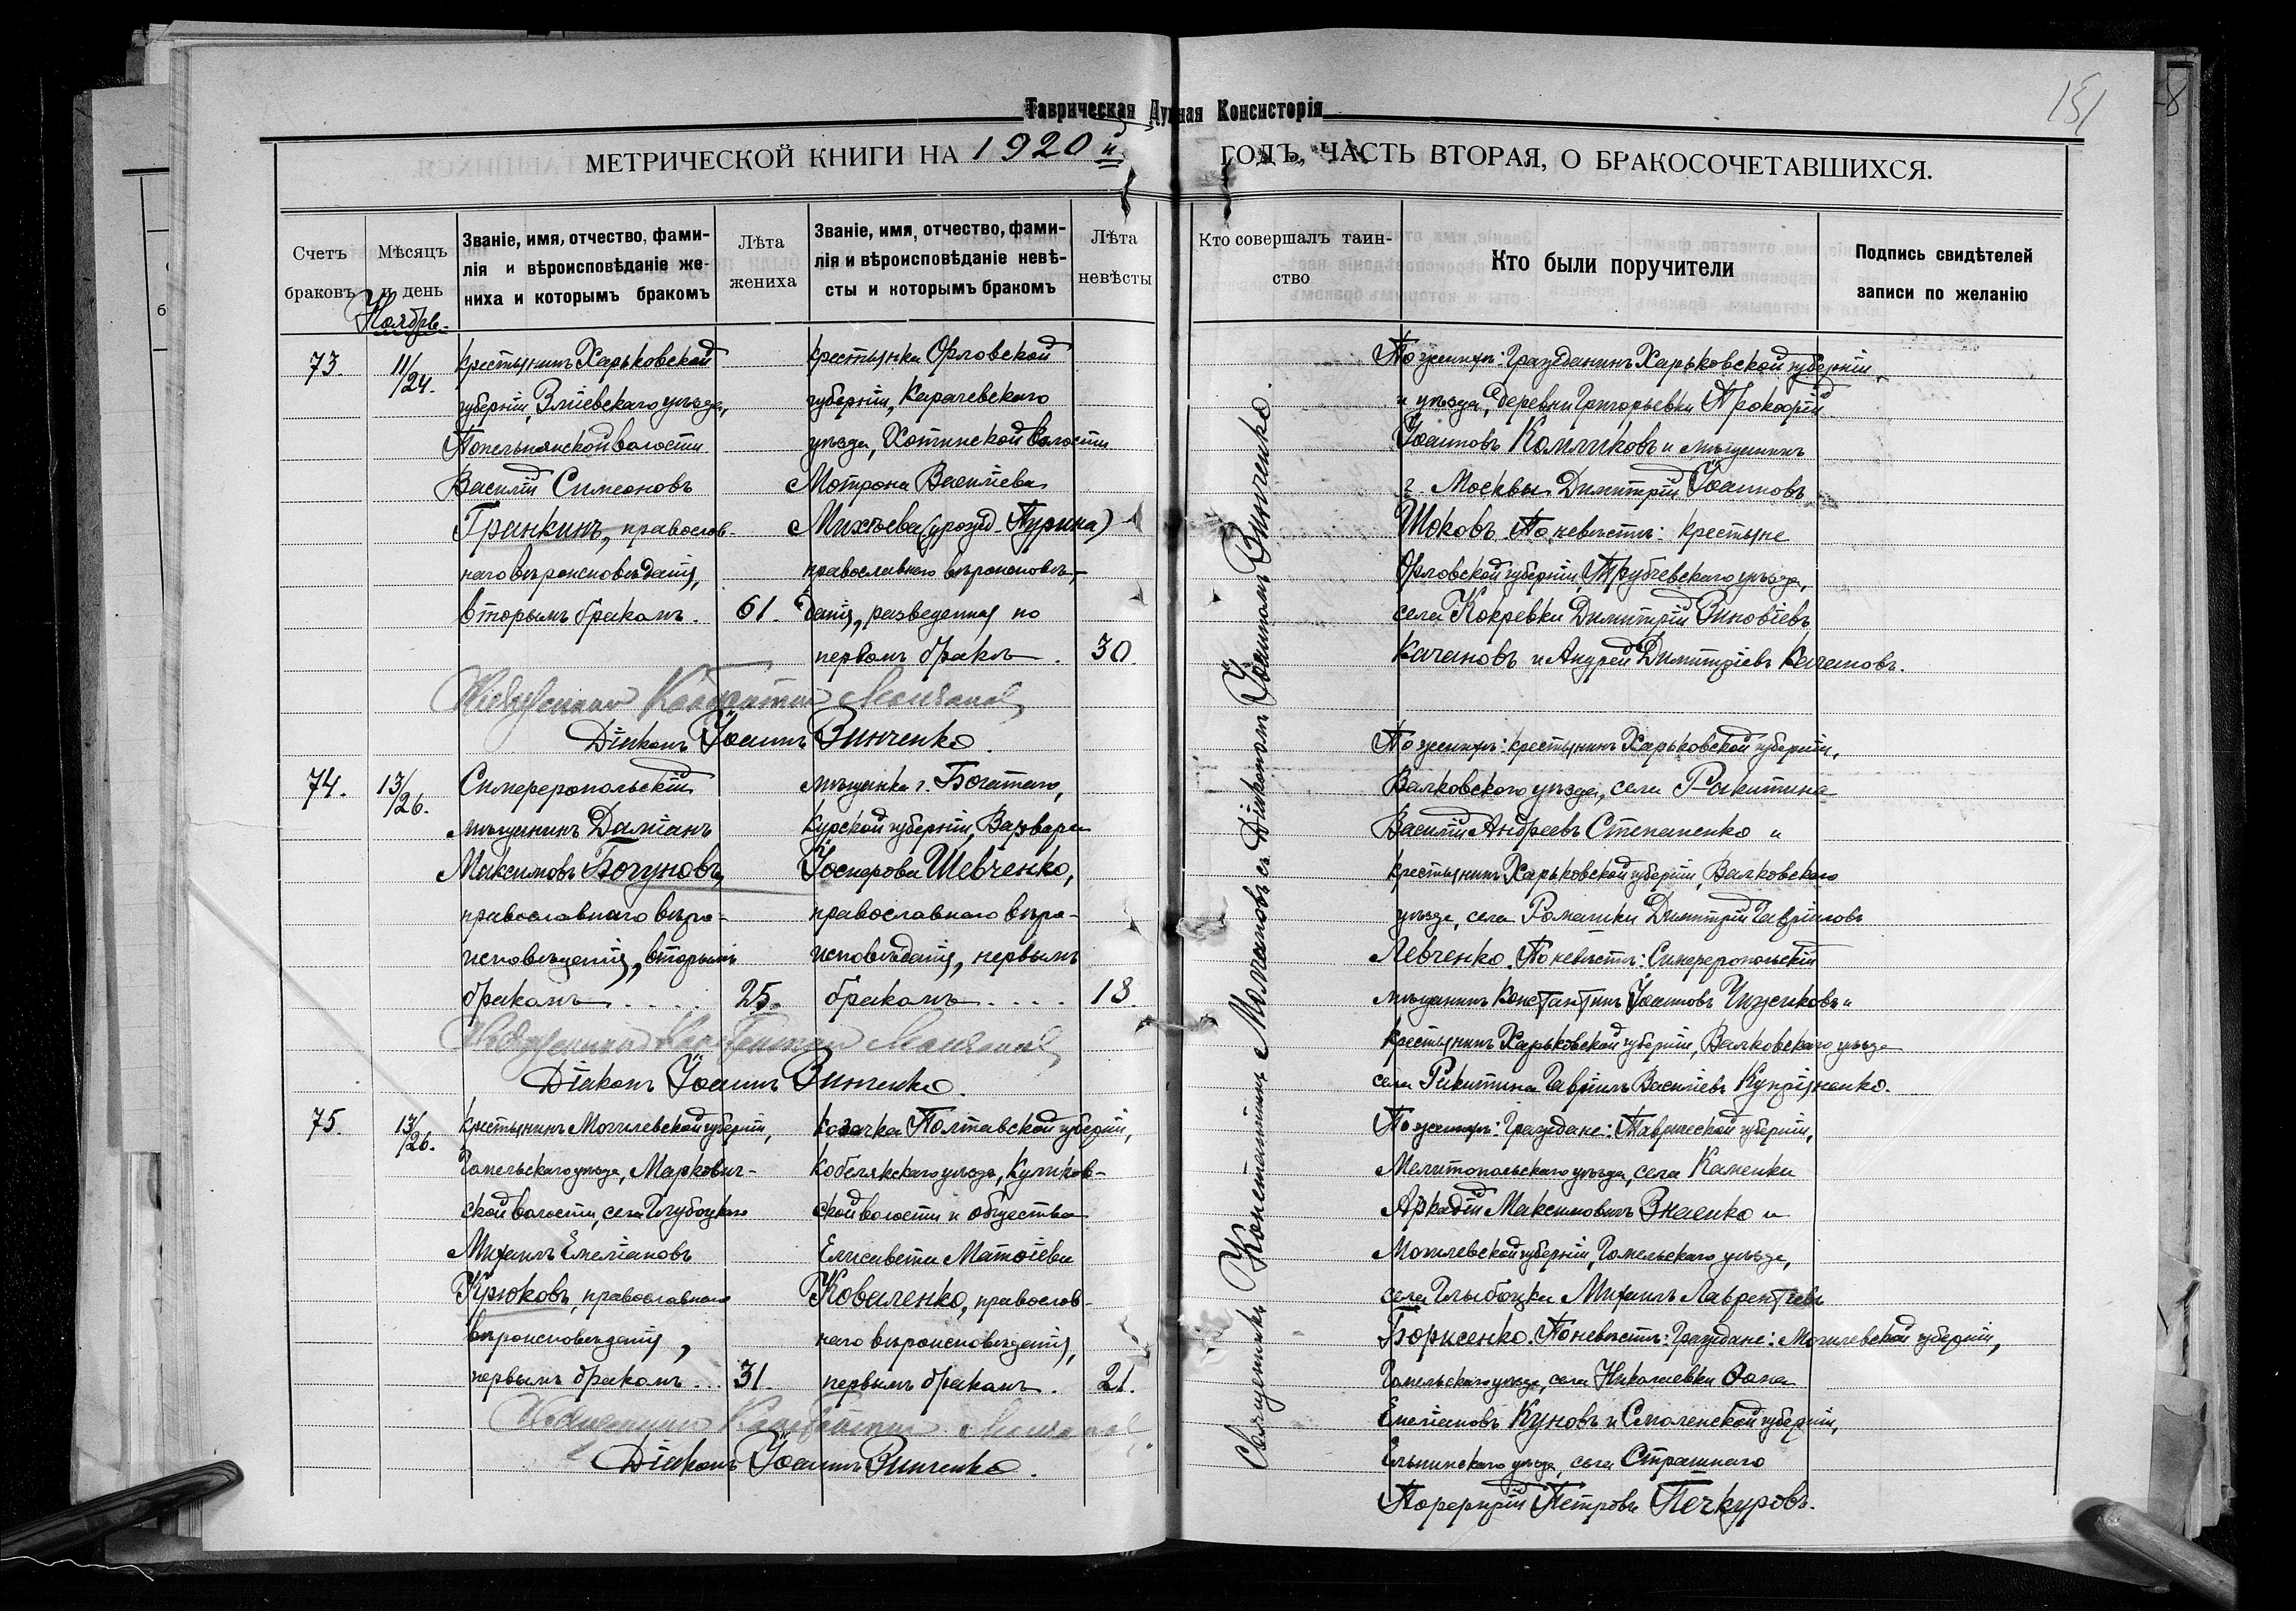 Таврическая Духная Консисторія
151
МЕТРИЧЕСКОЙ КНИГИ НА 1920й ГОДЪ, ЧАСТЬ ВТОРАЯ, О БРАКОСОЧЕТАВШИХСЯ.
Счетъ браковъ
Мѣсяцъ и день
Званіе, имя, отчество, фами-
лія и вѣроисповѣданіе же-
ниха и которымъ бракомъ
Лѣта жениха
Званіе, имя, отчество, фами-
лія и вѣроисповѣданіе невѣ-
сты и которымъ бракомъ
Лѣта невѣсты
Кто совершалъ таин-
ство
Кто были поручители
Подпись свидѣтелей
записи по желанію
Ноябрь.
73.
11/24.
крестьянинъ Харьковской
губерніи, Зміевскаго уѣзда,
волости
Василій Симеоновъ
Гранкинъ, православ-
наго вѣроисповѣданія,
вторымъ бракомъ.
61.
крестьянка Орловской
губерніи, Карачевскаго
уѣзда, Хотинской волости
Мотрона Василіева
Михѣева (урожд. Пурина)
православнаго вѣроисповѣ-
данія, разведенная по
первомъ бракѣ.
30.
По женихѣ: Гражданинъ Харьковской губерніи,
и уѣзда, деревни Григорьевки Прокофій
Іоанновъ Комликовъ и мѣщанинъ
г. Москвы Димитрій Іоанновъ
Шоковъ. По невѣстѣ: крестьяне
Орловской губерніи, Трубчевскаго уѣзда,
села Кокревки Димитрій Зиновіевъ
Качановъ и Андрей Димитріевъ Качановъ.
Священникъ Константинъ
Діаконъ Іоаннъ Зинченко.
74.
13/26.
Симферопольскій
мѣщанинъ Даміанъ
Максимовъ Богуновъ,
православнаго вѣро-
исповѣданія, вторымъ
бракомъ . . . .
25.
мѣщанка г. Богатаго,
Курской губерніи, Варвара
Іосифова Шевченко,
православнаго вѣро-
исповѣданія, первымъ
бракомъ . . . .
18.
По женихѣ: крестьянинъ Харьковской губерніи,
Валковскаго уѣзда, села Ракитина
Василій Андреевъ Степаненко и
крестьянинъ Харьковской губерніи, Валковскаго
уѣзда, села Димитрій Гавріиловъ
Левченко. По невѣстѣ: Симферопольскій
мѣщанинъ Константинъ Іоанновъ Чижиковъ и
крестьянинъ Харьковской губерніи, Валковскаго уѣзда
села Ракитина Гавріилъ Василіевъ Купріяненко.
Священникъ Константинъ
Діаконъ Іоаннъ Зинченко.
75.
13/26.
крестьянинъ Могилевской губерніи,
Гомельскаго уѣзда, Маркович-
ской волости, села Глубоцкаго
Михаилъ Емеліановъ
Крюковъ, православнаго
вѣроисповѣданія,
первымъ бракомъ . . .
31.
козачка Полтавской губерніи,
Кобелякскаго уѣзда,
ской волости и общества
Елисавета Матѳіева
Коваленко, православ-
наго вѣроисповѣданія,
первымъ бракомъ.
21.
По женихѣ: Граждане: Таврической губерніи,
Мелитопольскаго уѣзда, села Каменки
Аркадій Максимовичъ Знаенко и
Могилевской губерніи, Гомельскаго уѣзда,
села Глыбоцка Михаилъ Лаврентіевъ
Борисенко. По невѣстѣ: Граждане: Могилевской губерніи,
Гомельскаго уѣзда, села Николаевки Ѳома
Емеліановъ Куновъ и Смоленской губерніи,
Ельнинскаго уѣзда, села Страшнаго
Порфирій Петровъ Печкуровъ.
Священникъ Константинъ
Діаконъ Іоаннъ Зинченко.
Священникъ Константинъ Молчановъ съ Діакономъ Іоанномъ Зинченко.